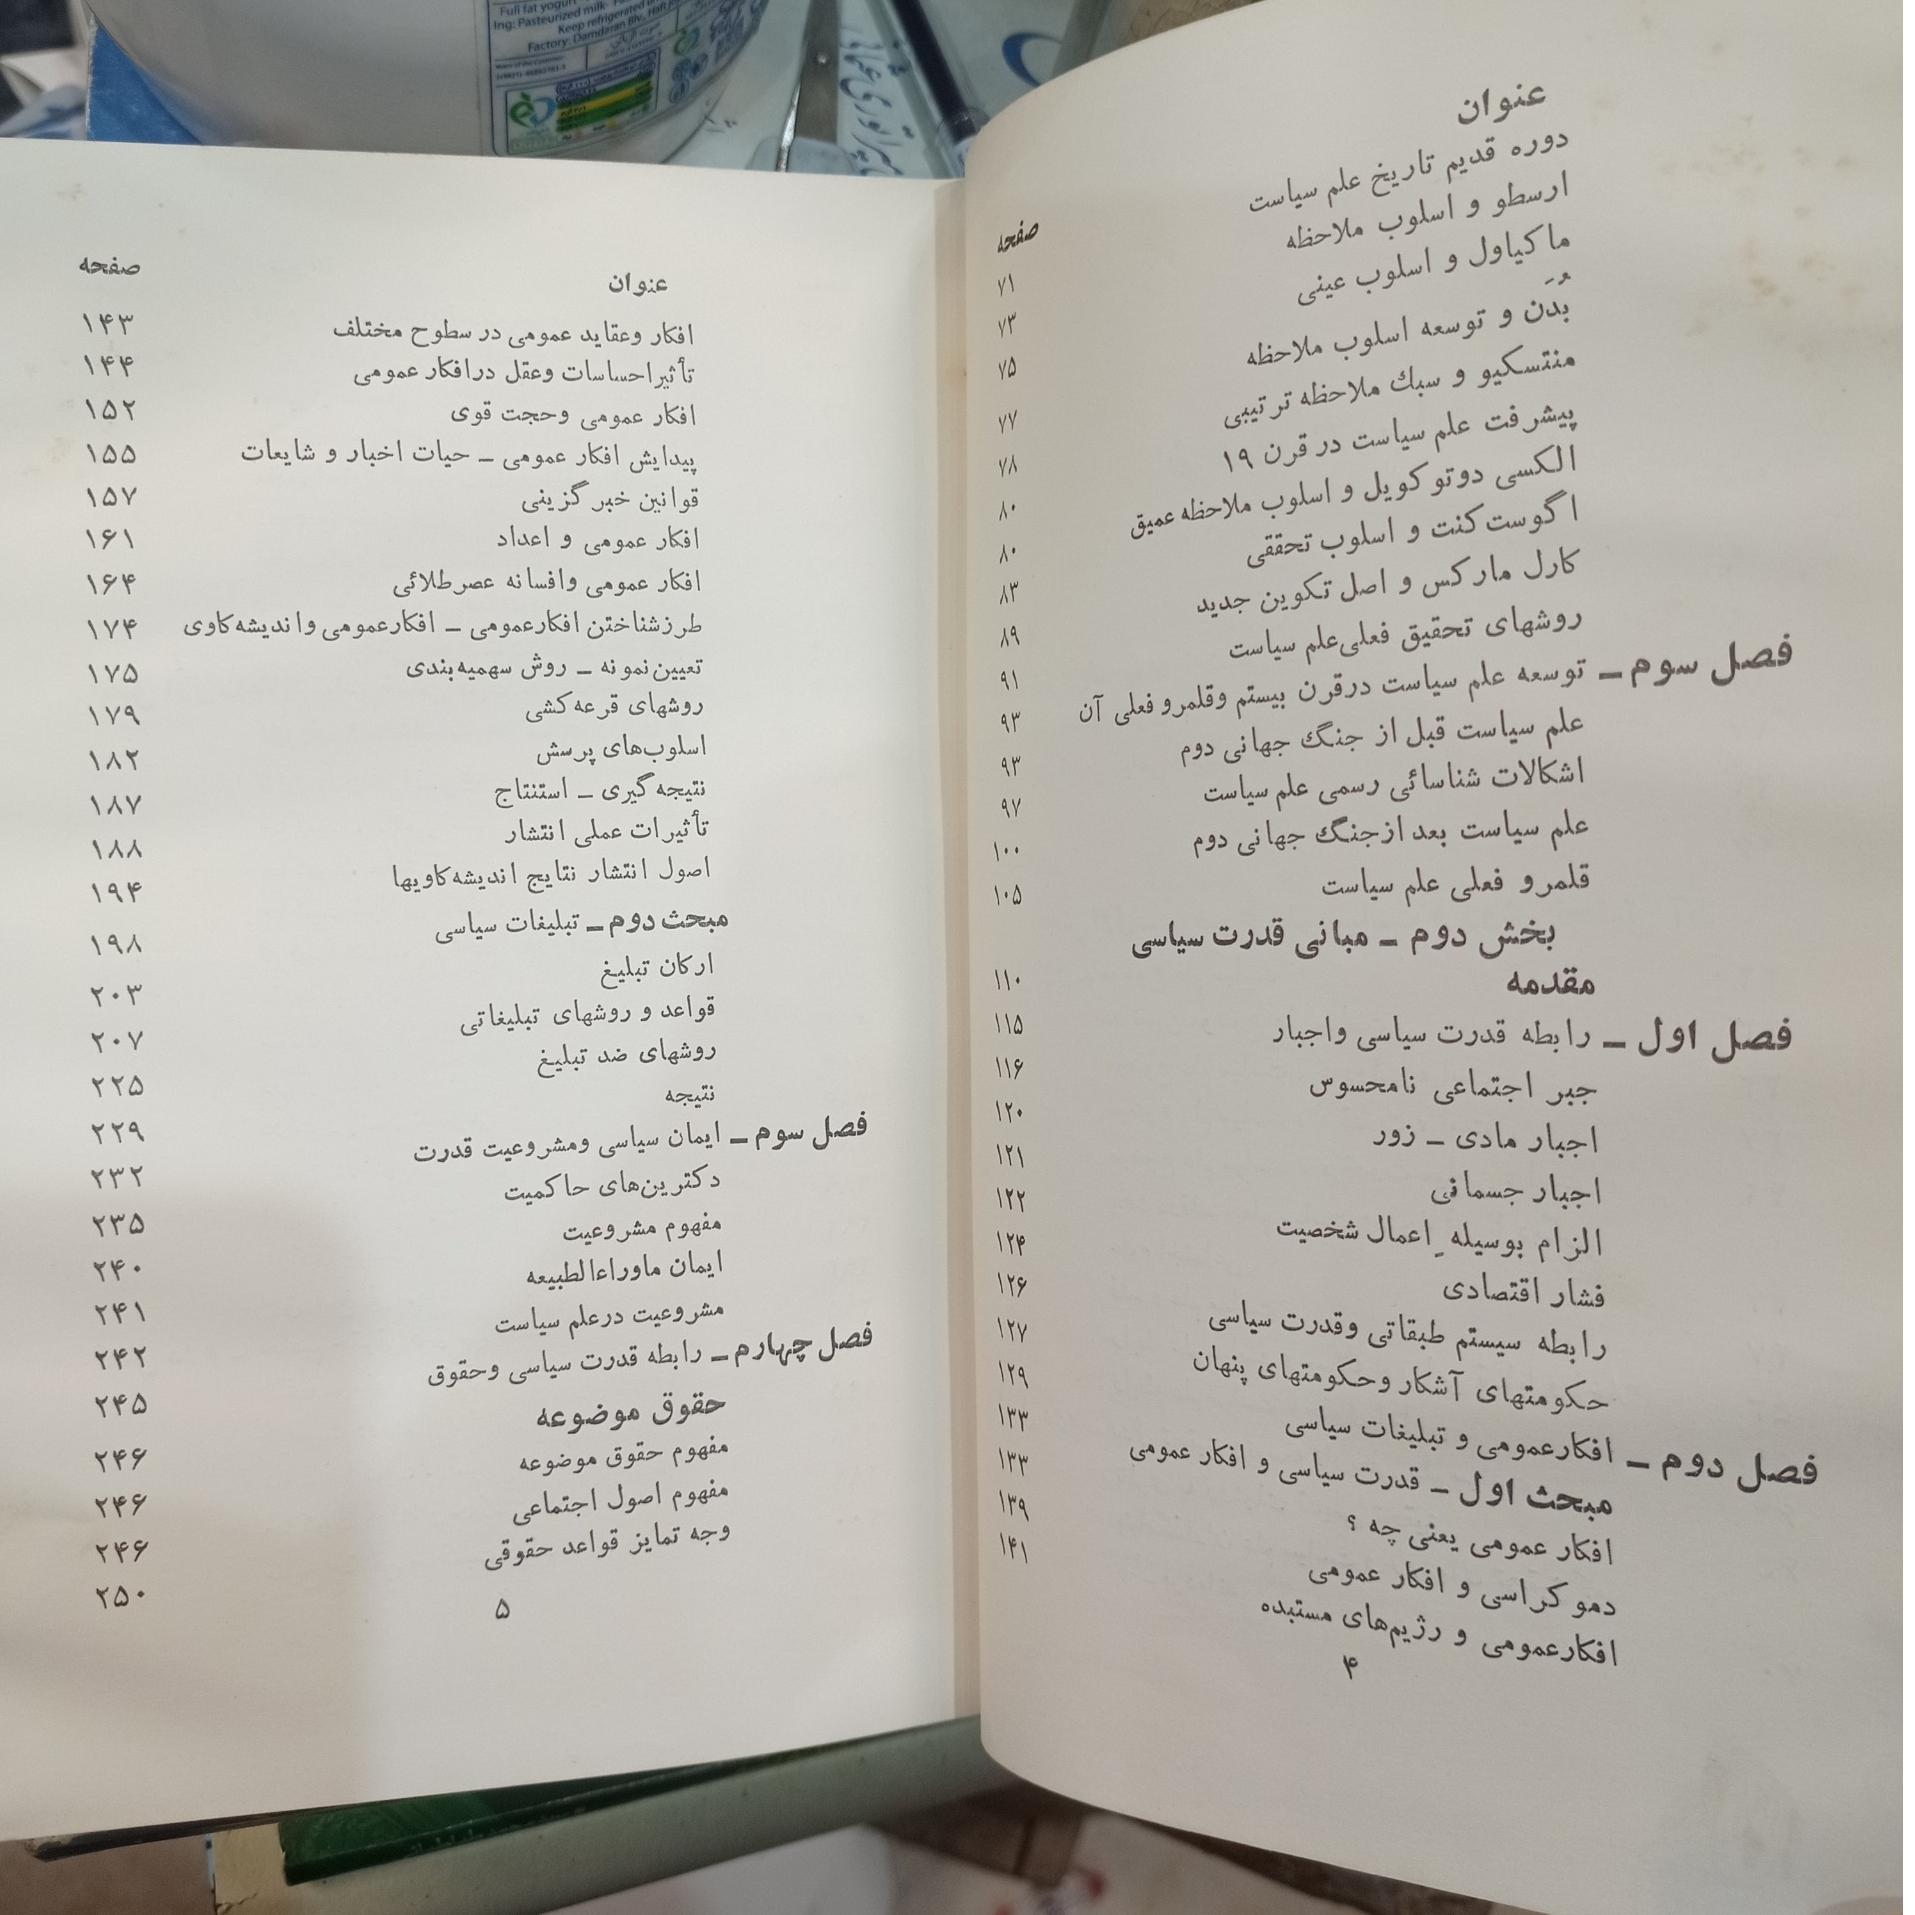 Full fat yogurt
Ing: Pasteurized milk
Keep refrigerated
Factory: Damdaran Blv.
عنوان صفحه
دوره قدیم تاریخ علم سیاست ۷۱
ارسطو و اسلوب ملاحظه ۷۳
ماکیاول و اسلوب عینی ۷۵
بُدَن و توسعه اسلوب ملاحظه ۷۷
منتسکیو و سبك ملاحظه ترتیبی ۷۸
پیشرفت علم سیاست در قرن ۱۹ ۸۰
الکسی دوتوکویل و اسلوب ملاحظه عمیق ۸۰
اگوست کنت و اسلوب تحققی ۸۳
کارل مارکس و اصل تکوین جدید ۸۹
روشهای تحقیق فعلی علم سیاست ۹۱
فصل سوم ـ توسعه علم سیاست درقرن بیستم وقلمرو فعلی آن ۹۳
علم سیاست قبل از جنگ جهانی دوم ۹۳
اشکالات شناسائی رسمی علم سیاست ۹۷
علم سیاست بعد ازجنگ جهانی دوم ۱۰۰
قلمرو فعلی علم سیاست ۱۰۵
بخش دوم ـ مبانی قدرت سیاسی
مقدمه ۱۱۰
فصل اول ـ رابطه قدرت سیاسی واجبار ۱۱۵
جبر اجتماعی نامحسوس ۱۱۶
اجبار مادی ـ زور ۱۲۰
اجبار جسمانی ۱۲۱
الزام بوسیله ِ اعمال شخصیت ۱۲۲
فشار اقتصادی ۱۲۴
رابطه سیستم طبقاتی وقدرت سیاسی ۱۲۶
حکومتهای آشکار وحکومتهای پنهان ۱۲۷
فصل دوم ـ افکارعمومی و تبلیغات سیاسی ۱۲۹
مبحث اول ـ قدرت سیاسی و افکار عمومی ۱۳۳
افکار عمومی یعنی چه ؟ ۱۳۳
دموکراسی و افکار عمومی ۱۳۹
افکارعمومی و رژیم‌های مستبده ۱۴۱
۴
عنوان صفحه
افکار وعقاید عمومی در سطوح مختلف ۱۴۳
تأثیراحساسات وعقل درافکار عمومی ۱۴۴
افکار عمومی وحجت قوی ۱۵۲
پیدایش افکار عمومی ـ حیات اخبار و شایعات ۱۵۵
قوانین خبر گزینی ۱۵۷
افکار عمومی و اعداد ۱۶۱
افکار عمومی وافسانه عصرطلائی ۱۶۴
طرزشناختن افکارعمومی ـ افکارعمومی واندیشه‌کاوی ۱۷۴
تعیین‌نمونه ـ روش سهمیه‌بندی ۱۷۵
روشهای قرعه‌کشی ۱۷۹
اسلوب‌های پرسش ۱۸۲
نتیجه گیری ـ استنتاج ۱۸۷
تأثیرات عملی انتشار ۱۸۸
اصول انتشار نتایج اندیشه‌کاویها ۱۹۴
مبحث دوم ـ تبلیغات سیاسی ۱۹۸
ارکان تبلیغ ۲۰۳
قواعد و روشهای تبلیغاتی ۲۰۷
روشهای ضد تبلیغ ۲۲۵
نتیجه ۲۲۹
فصل سوم ـ ایمان سیاسی ومشروعیت قدرت ۲۳۲
دکترین‌های حاکمیت ۲۳۵
مفهوم مشروعیت ۲۴۰
ایمان ماوراءالطبیعه ۲۴۱
مشروعیت درعلم سیاست ۲۴۲
فصل چهارم ـ رابطه قدرت سیاسی وحقوق ۲۴۵
حقوق موضوعه ۲۴۶
مفهوم حقوق موضوعه ۲۴۶
مفهوم اصول اجتماعی ۲۴۶
وجه تمایز قواعد حقوقی ۲۵۰
۵